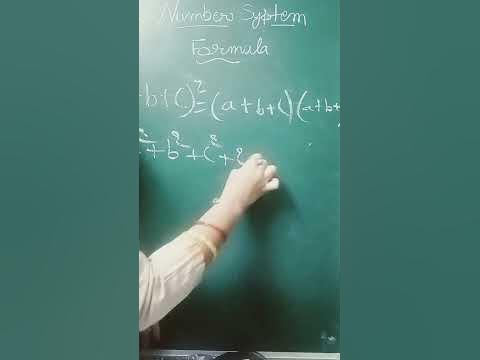 Number System
Formula
+b+c)²=(a+b+c)(a+b+
²+b²+c²+2